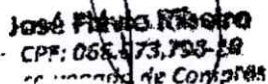 José Flávio Ribeiro
CPF: 066.573.793-
de Compras